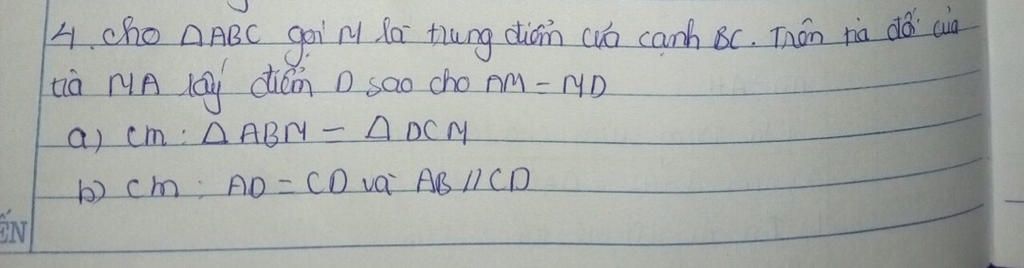 4. cho ΔABC gọi M là trung điểm của cạnh BC. Trên tia đối của
tia MA lấy điểm D sao cho AM = MD
a) cm: ΔABM = ΔDCM
b) cm: AD = CD và AB // CD
ẾN